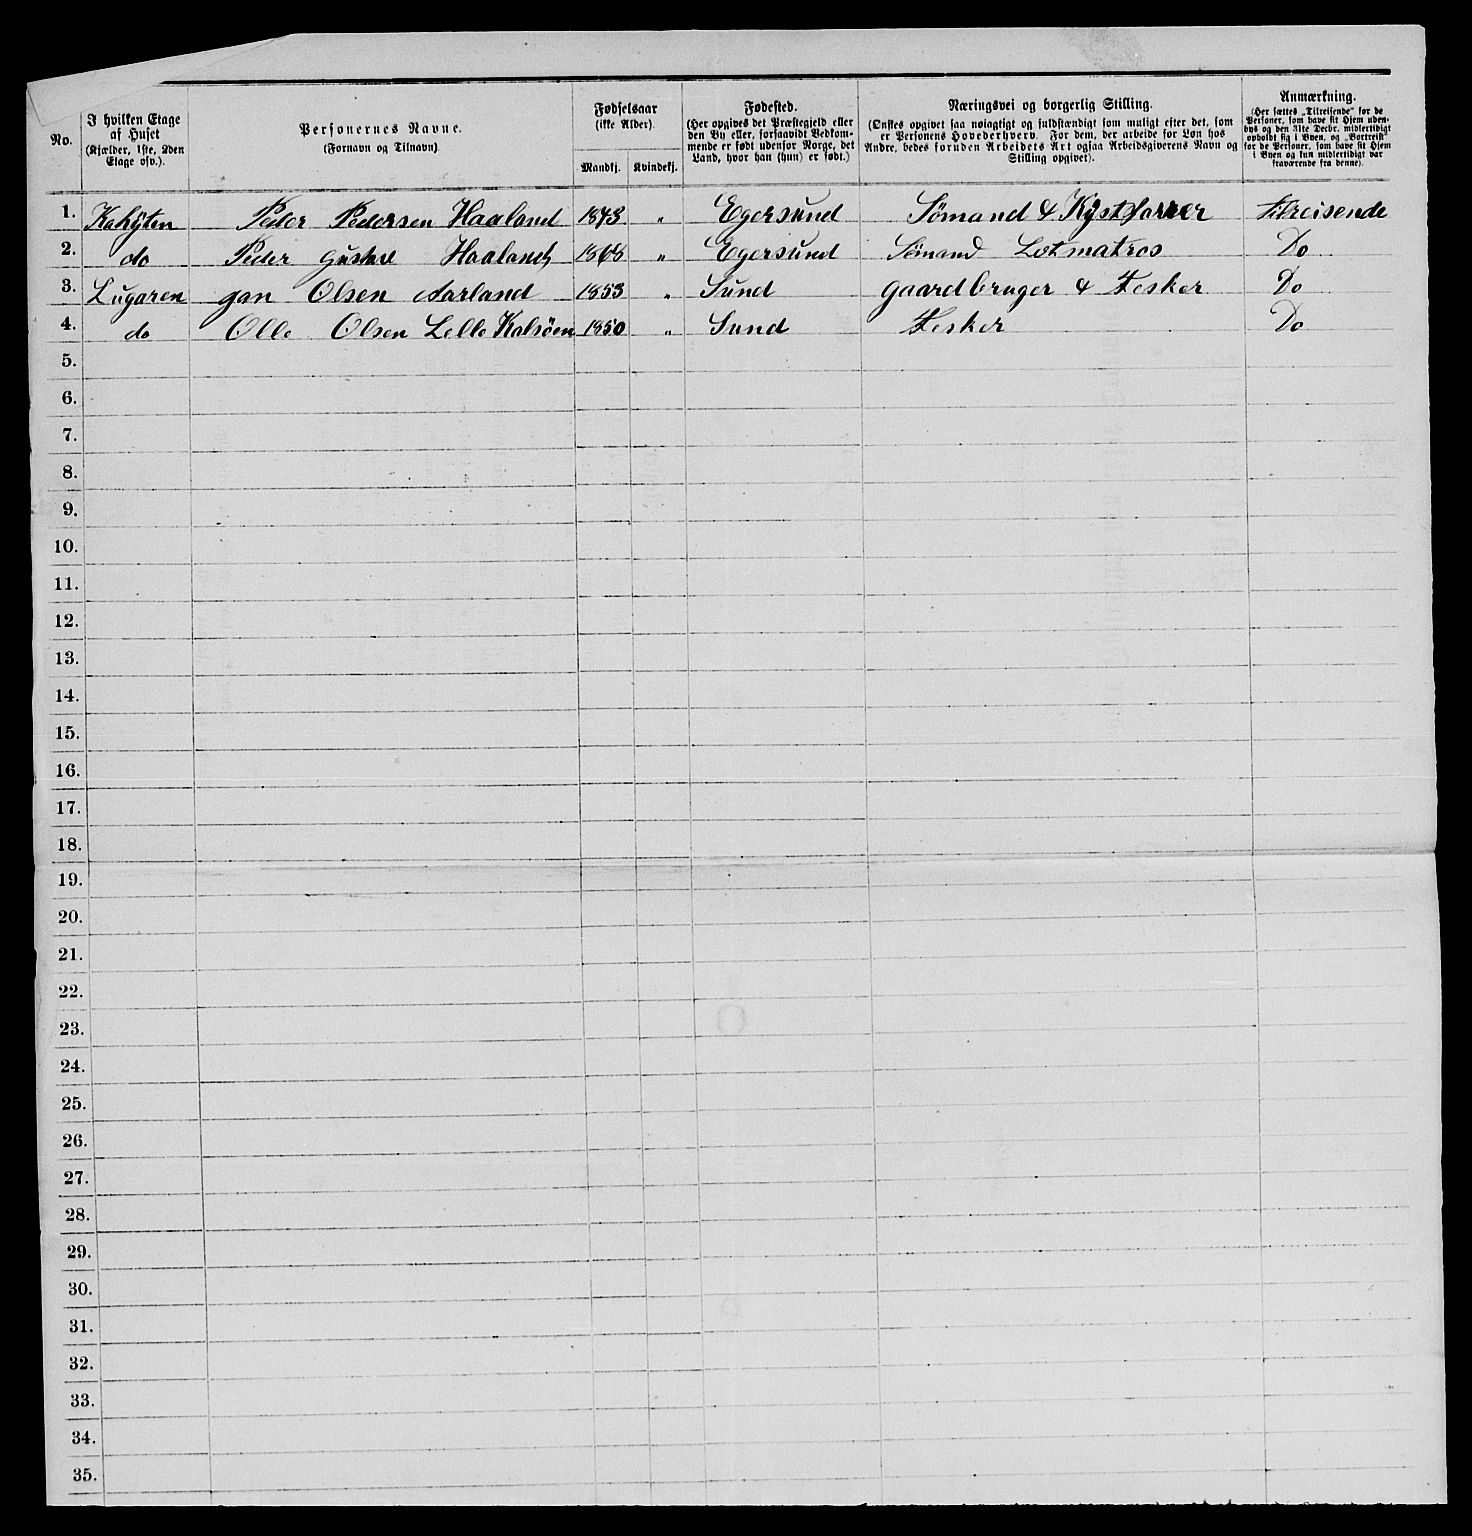 No.
I hvilken Etage af Huset (Kjælder, 1ste, 2den Etage osv.).
Personernes Navne. (Fornavn og Tilnavn)
Fødselsaar (ikke Alder).
Mandkj. Kvindekj.
Fødested. (Her opgives det Præstegjeld eller den By eller, forsaavidt Vedkommende er født udenfor Norge, det Land, hvor han (hun) er født.)
Næringsvei og borgerlig Stilling. (Ønskes opgivet saa nøiagtigt og fuldstændigt som muligt efter det, som er Personens Hovederhverv. For dem, der arbeide for Løn hos Andre, bedes foruden Arbeidets Art ogsaa Arbeidsgiverens Navn og Stilling opgivet).
Anmærkning. (Her sættes „Tilreisende" for de Personer, som have sit Hjem udenbys og den 31te Decbr. midlertidigt opholdt sig i Byen, og „Bortreist" for de Personer, som have sit Hjem i Byen og nu midlertidigt var fraværende fra denne).
1. Kahyten Peder Pedersen Haaland 1843 „ Egersund Sømand & Kystfarer tilreisende
2. do Peder Gustav Haaland 1868 „ Egersund Sømand Letmatros Do
3. Lugaren Jan Olsen Aarland 1853 „ Sund gaardbruger & Fesker Do
4. do Olle Olsen Lelle Kalsöen 1850 „ Sund Fesker Do
5.
6.
7.
8.
9.
10.
11.
12.
13.
14.
15.
16.
17.
18.
19.
20.
21.
22.
23.
24.
25.
26.
27.
28.
29.
30.
31.
32.
33.
34.
35.